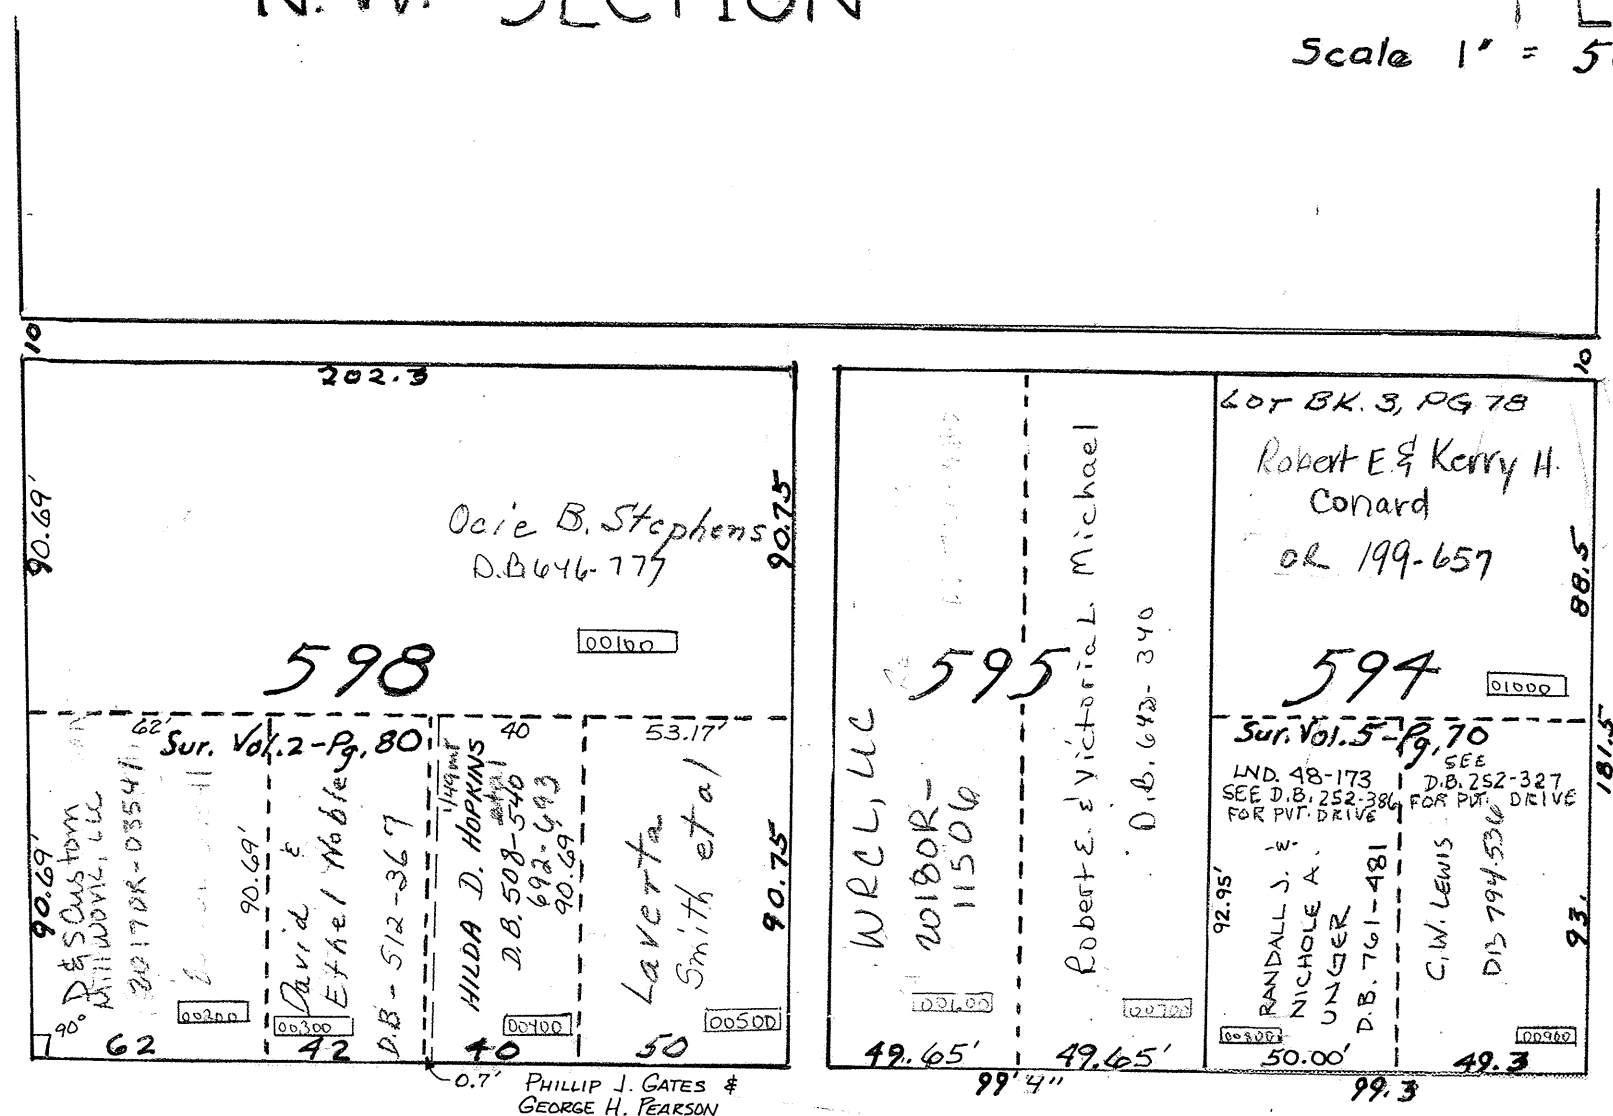 N.W. SECTION
Scale 1" =
10
10
202.3
90.69'
Ocie B. Stephens
D.B 646-777
90.75
00100
598
62'
Sur. Vol.2-Pg.80
40
53.17'
90.69'
D & S Custom
Millwork, LLC
2017OR-03541
90.69'
90°
00200
62
David &
Ethel Noble
D.B-512-367
00300
42
HILDA D. HOPKINS
etal
D.B. 508-540
692-693
90.69'
00400
40
Laverta
Smith et al
90.75
00500
50
0.7' PHILLIP J. GATES &
GEORGE H. PEARSON
595
WRCL, LLC
2018OR-
11506
00600
49.65'
Robert E. & Victoria L. Michael
D.B. 642-340
00700
49.65'
99'4"
LOT BK. 3, PG 78
Robert E. & Kerry H.
Conard
OR 199-657
88.5
594
01000
181.5
Sur. Vol. 5-Pg. 70
LND. 48-173
SEE D.B. 252-386
FOR PVT. DRIVE
SEE
D.B. 252-327
FOR PVT. DRIVE
92.95'
RANDALL J. -W-
NICHOLE A.
UNGER
D.B. 761-481
00800
50.00'
C.W. LEWIS
DB 794-536
93.
00900
49.3
99.3